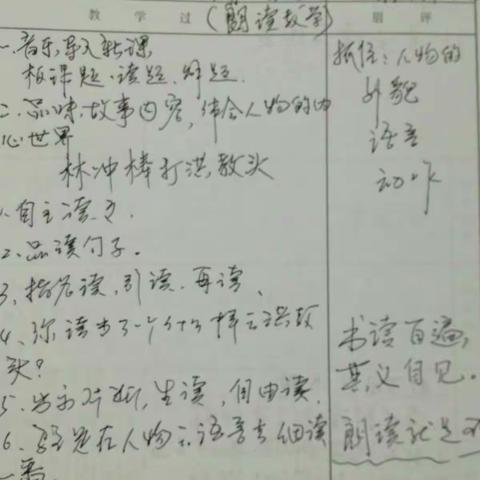 教 学 过 (朗读教学) 副 评
一.音乐,导入新课
板课题.读题.解题.
二.品味故事内容,体会人物的内
心世界
林冲棒打洪教头
1.自主读文.
2.品读句子.
3.指名读,引读.再读.
4.你读出了一个什么样的洪教
头?
5.出示片断,生读,自由读.
6.在人物 语言 细读
一遍.
抓住:人物的
外貌
语言
动作
书读百遍,
其义自见.
朗读就是